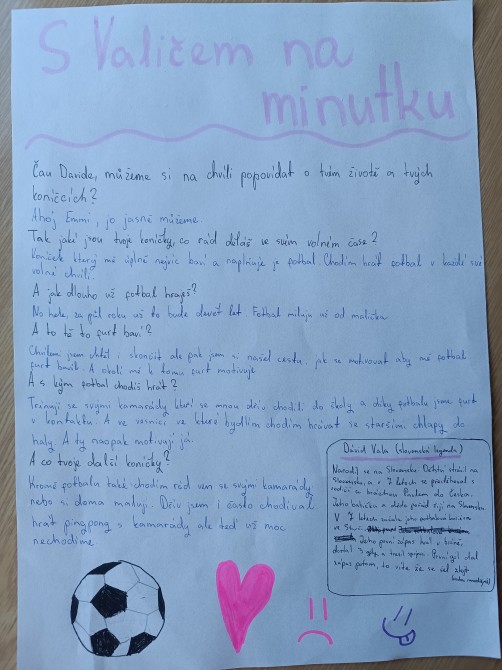 S Valičem na
minutku
Čau Davide, můžeme si na chvíli popovídat o tvém životě a tvých
koníčcích?
Ahoj Emmi, jo jasně můžeme.
Tak jaké jsou tvoje koníčky, co rád děláš ve svém volném čase?
Koníček který mě úplně nejvíc baví a naplňuje je fotbal. Chodím hrát fotbal v každé své
volné chvíli.
A jak dlouho už fotbal hraješ?
No hele, za půl roku už to bude devět let. Fotbal miluju už od malička
A to tě to furt baví?
Chvílemi jsem chtěl i skončit ale pak jsem si našel cestu, jak se motivovat aby mě fotbal
furt bavil. A okolí mě k tomu furt motivuje
A s kým fotbal chodíš hrát?
Trénuji se svými kamarády, kteří se mnou dřív chodili do školy a díky fotbalu jsme furt
v kontaktu. A ve vesnici ve které bydlím chodím hrávat se staršími chlapy do
haly. A ty naopak motivuji já.
A co tvoje další koníčky?
Kromě fotbalu také chodím rád ven se svými kamarády
nebo si doma maluji. Dřív jsem i často chodíval
hrát pingpong s kamarády ale teď už moc
nechodíme
Dávid Vala (slovenská legenda)
Narodil se na Slovensku. Dětství strávil na
Slovensku, a v 7 letech se přestěhoval s
rodiči a bráchou Paulem do Česka.
Jeho babička a děda pořád žijí na Slovensku
V 7 letech začala jeho fotbalová kariéra
ve
Jeho první zápas hrál v bráně,
dostal 3 góly a trefil spojení. První gól dal
zápas potom, to víte že se cel